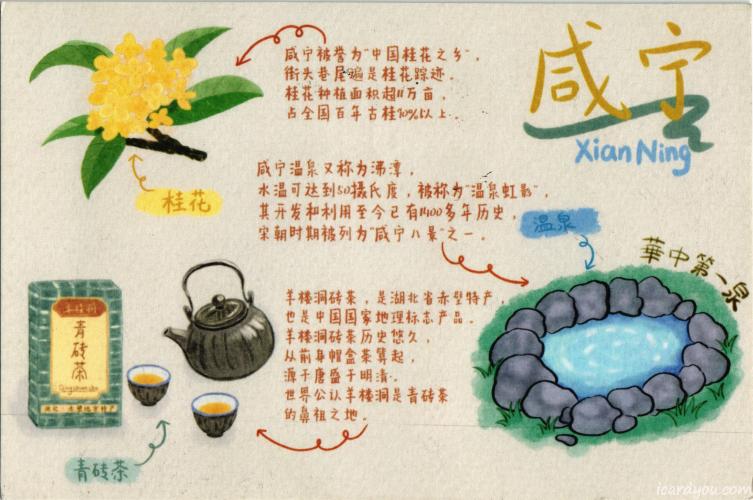 咸宁
XianNing
咸宁被誉为"中国桂花之乡",
街头巷尾遍是桂花踪迹。
桂花种植面积超11万亩,
占全国百年古桂90%以上。
桂花
咸宁温泉又称为沸潭,
水温可达到50摄氏度,被称为"温泉虹影",
其开发和利用至今已有1400多年历史,
宋朝时期被列为"咸宁八景"之一。
温泉
華中第一泉
羊楼洞砖茶,是湖北省赤壁特产,
也是中国国家地理标志产品。
羊楼洞砖茶历史悠久,
从前身帽盒茶算起,
源于唐盛于明清。
世界公认羊楼洞是青砖茶
的鼻祖之地。
羊楼洞
青砖茶
Qingzhuancha
湖北·赤壁地方特产
青砖茶
icardyou.com